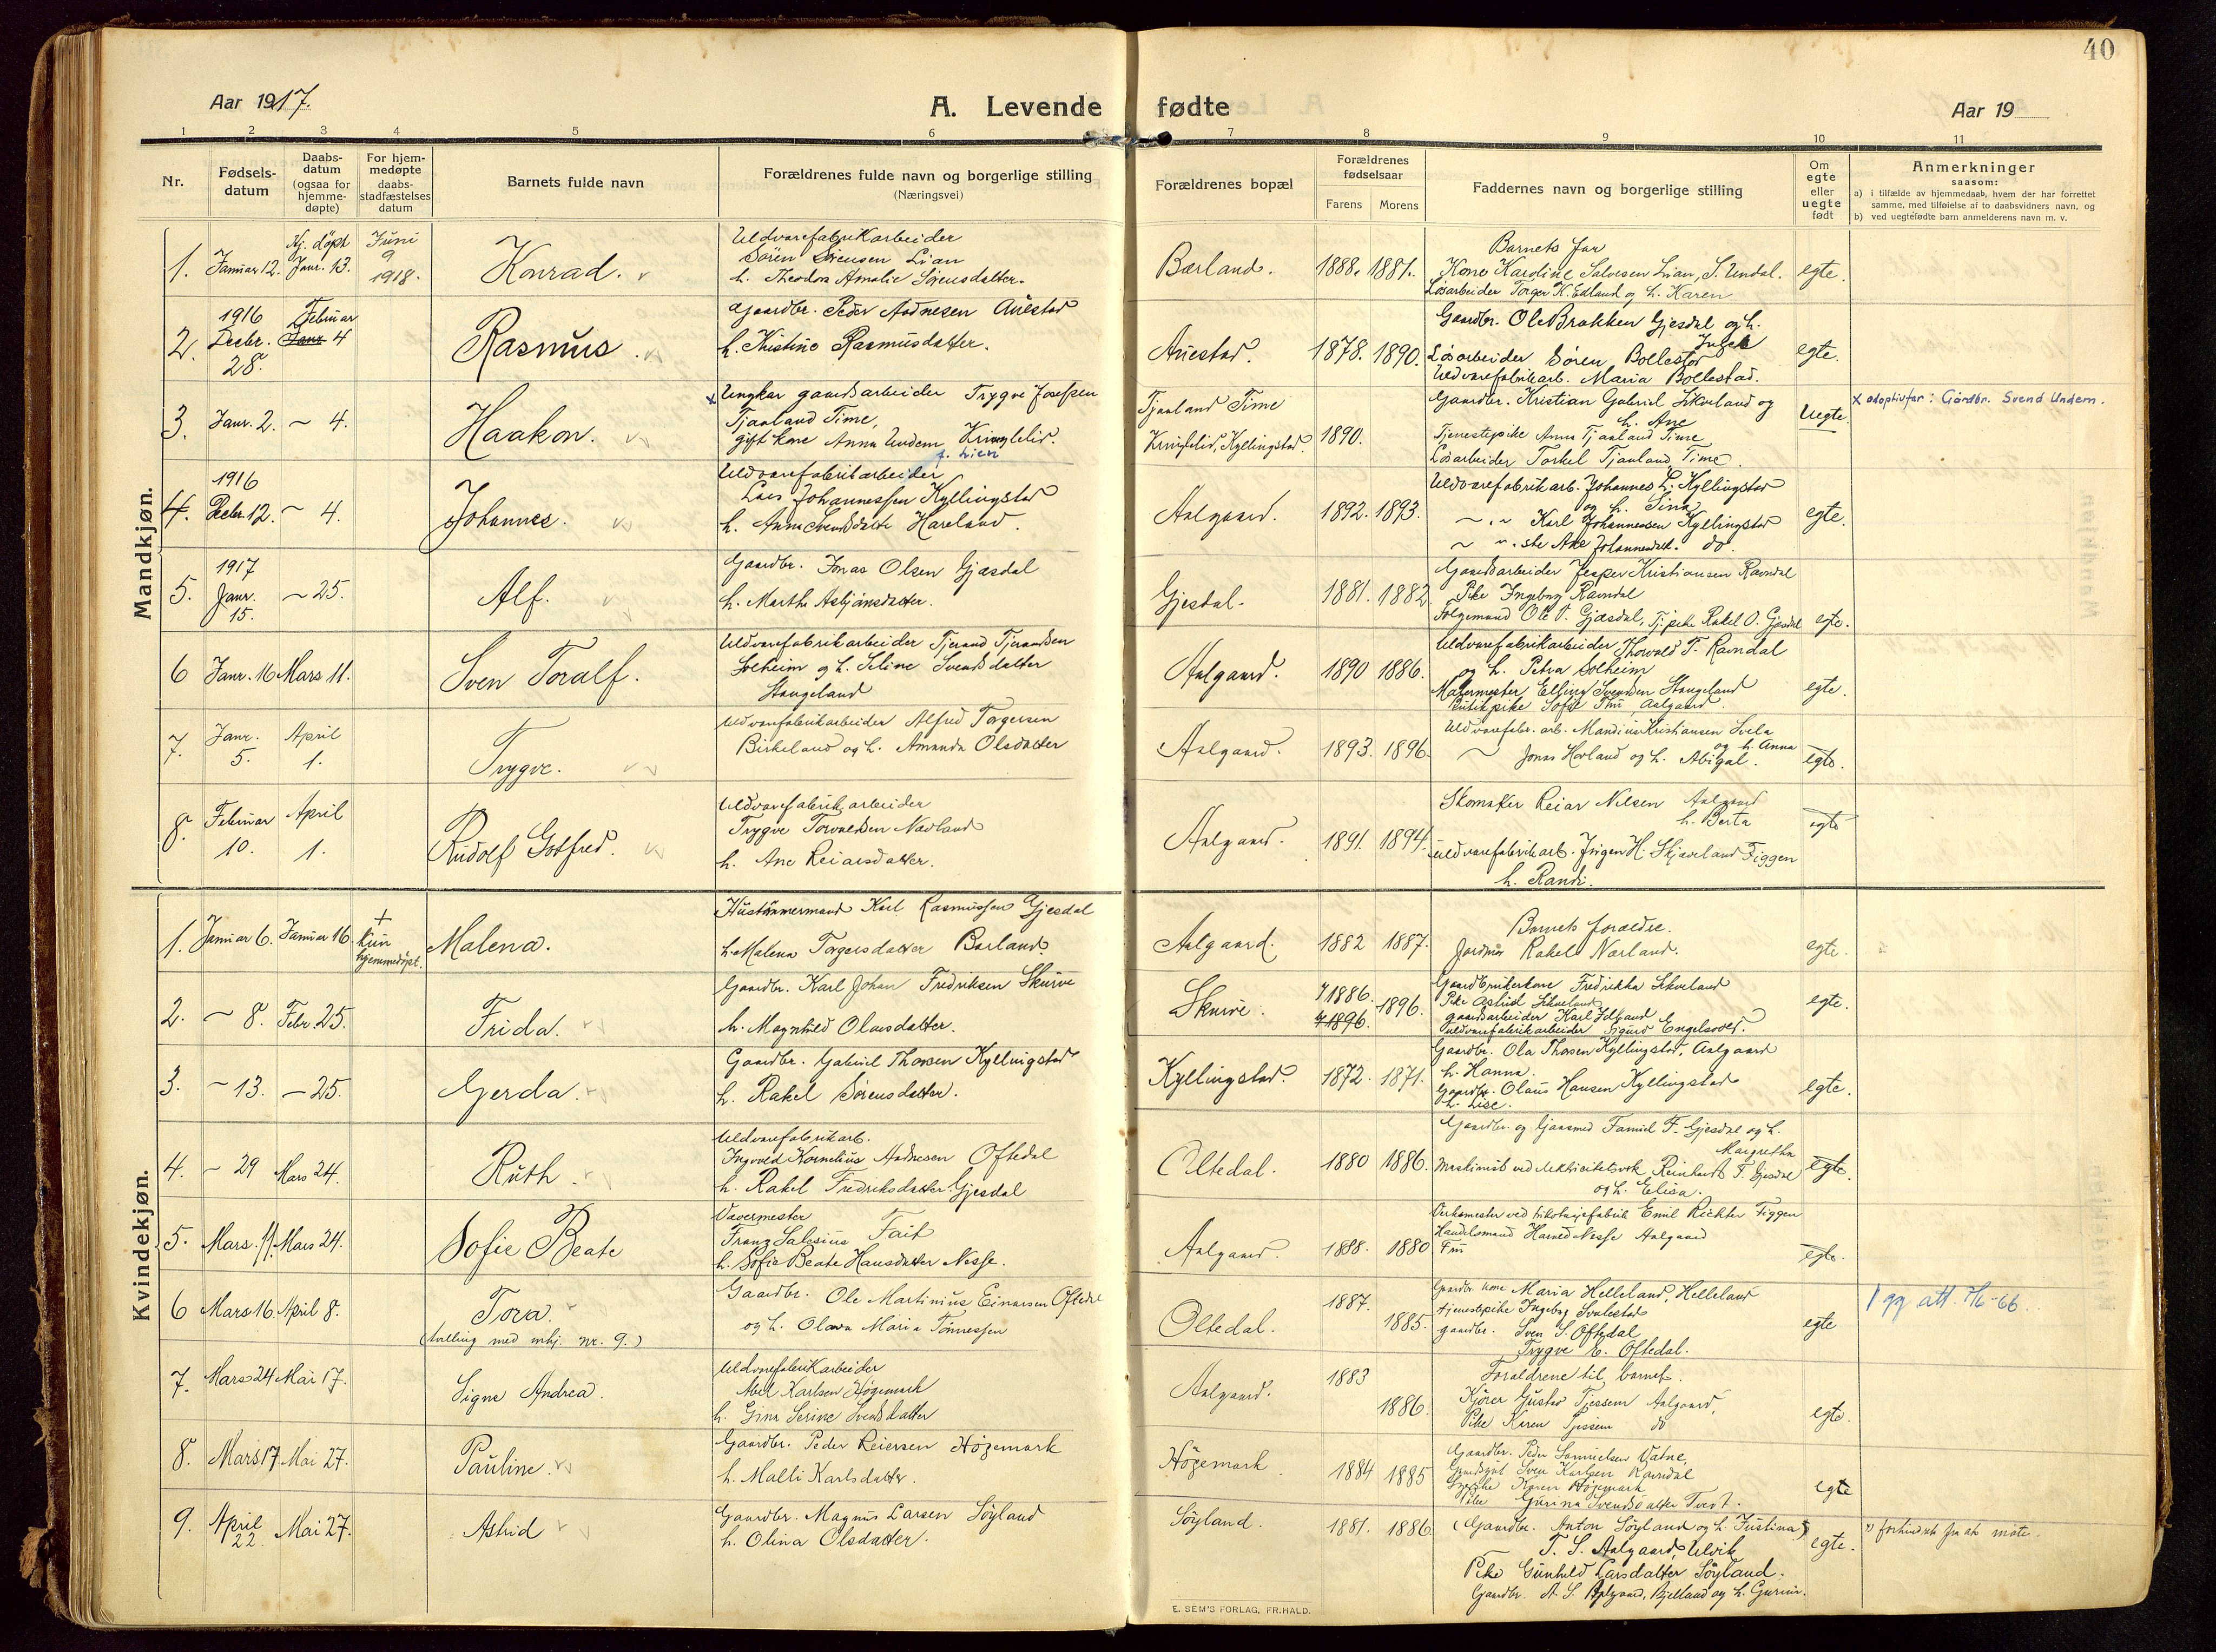 40
Aar 1917.
A. Levende fødte
Aar 19
1 2 3 4 5 6 7 8 9 10 11
Nr.
Fødsels-
datum
Daabs-
datum
(ogsaa for
hjemme-
døpte)
For hjem-
medøpte
daabs-
stadfæstelses
datum
Barnets fulde navn
Forældrenes fulde navn og borgerlige stilling
(Næringsvei)
Forældrenes bopæl
Forældrenes
fødselsaar
Farens Morens
Faddernes navn og borgerlige stilling
Om
egte
eller
uegte
født
Anmerkninger
saasom:
a) i tilfælde av hjemmedaab, hvem der har forrettet
samme, med tilføielse af to daabsvidners navn, og
b) ved uegtefødte barn anmelderens navn m. v.
Mandkjøn.
1. Januar 12. Hj. döpt Janr. 13. Juni 9 1918. Konrad.
Uldvarefabrikarbeider
Sören Sörensen Lian
h. Theodora Amalie Sörensdatter.
Bærland. 1888. 1887.
Barnets far
Kone Karoline Salvesen Lian, S. Undal.
Lösarbeider Torger K. Edland og h. Karen
egte.
2. 1916 Decbr. 28. Februar 4 Rasmus.
Gaardbr. Peder Aadnesen Auestad
h. Kristine Rasmusdatter.
Auestad. 1878. 1890.
Gaardbr. Ole Brekken Gjesdal og h.
Inger
Lösarbeider Sören Bollestad
Uldvarefabrikarb. Maria Bollestad.
egte.
3. Janr. 2. ~ 4. Haakon.
x Ungkar gaardsarbeider Trygve Josefsen
Tjaaland Time,
gift kone Anna Undem, Kringlelid.
f. Lien
Tjaaland Time
Kringlelid, Kyllingstad. 1890.
Gaardbr. Kristian Gabriel Sikveland og
h. Ane
Tjenestepike Anna Tjaaland Time
Lösarbeider Torkel Tjaaland Time.
Uegte.
x adoptivfar: Gårdbr. Svend Undem.
4. 1916 Decbr. 12. ~ 4. Johannes.
Uldvarefabrikarbeider
Lars Johannessen Kyllingstad
h. Anna Svendsdatter Haveland.
Aalgaard. 1892. 1893.
Uldvarefabrikarb. Johannes L. Kyllingstad
og h. Sina
~ " ~ Karl Johannessen Kyllingstad
~ " ske Ane Johannesdtr. do.
egte.
5. 1917 Janr. 15. ~ 25. Alf.
Gaardbr. Jonas Olsen Gjesdal
h. Marthe Asbjörnsdatter.
Gjesdal. 1881. 1882.
Gaardsarbeider Jesper Kristiansen Ravndal
Pike Ingeborg Ravndal
Folgemand Ole O. Gjesdal, Tj.pike Rakel O. Gjesdal
egte.
6 Janr. 16 Mars 11. Sven Toralf.
Uldvarefabrikarbeider Tjerand Tjerandsen
Solheim og h. Seline Svendsdatter
Stangeland
Aalgaard. 1890 1886.
Uldvarefabrikarbeider Thorvald T. Ravndal
og h. Petra Solheim
Malermester Elling Svendsen Stangeland
Butikpike Sofie Thu, Aalgaard.
egte.
7. Janr. 5. April 1. Trygve.
Uldvarefabrikarbeider Alfred Torgersen
Birkeland og h. Amanda Olsdatter
Aalgaard. 1893. 1896.
Uldvarefabr. arb. Mandius Kristiansen Svela
og h. Anna
~ Jonas Hovland og h. Abigal.
egte.
8. Februar 10. April 1. Rudolf Gotfred.
Uldvarefabrikarbeider
Trygve Torvaldsen Nævland
h. Ane Reiarsdatter.
Aalgaard. 1891. 1894.
Skomaker Reiar Nilsen Aalgaard
h. Berta
Uldvarefabrikarb. Jörgen H. Skjæveland Figgen
h. Randi.
egte
Kvindekjøn.
1. Januar 6. Januar 16. + kun hjemmedöpt. Malena.
Hustömmermand Karl Rasmussen Gjesdal
h. Malena Torgersdatter Bærland.
Aalgaard. 1882 1887.
Barnets forældre.
Jordmor Rakel Nærland.
egte.
2. ~ 8. Febr. 25. Frida.
Gaardbr. Karl Johan Fredriksen Skurve
h. Magnhild Olausdatter.
Skurve. 1886. 1896. 1896.
Gaardbrukerkone Fredrikka Sikveland
Pike Astrid Sikveland
gaardsarbeider Karl Idland
uldvarefabrikarbeider Sigurd Engelsvold.
egte.
3. ~ 13. ~ 25. Gerda.
Gaardbr. Gabriel Thorsen Kyllingstad
h. Rakel Sörensdatter.
Kyllingstad. 1872. 1871.
Gaardbr. Ola Thorsen Kyllingstad, Aalgaard
h. Hanna.
Gaardbr. Olaus Hansen Kyllingstad
h. Lise.
egte.
4. ~ 29 Mars 24. Ruth.
Uldvarefabrikarb.
Ingvald Kornelius Andresen Oftedal
h. Rakel Fredriksdatter Gjesdal
Oltedal. 1880 1886.
Gaardbr. og Gjørsmed Samuel F. Gjesdal og h.
Margretha
Maskinist ved elektricitetsverk Reinhardt F. Gjesdal
og h. Elisa.
egte.
5. Mars. 11. Mars 24. Sofie Beate
Vævermester
Franz Salesius Fait
h. Sofie Beate Hansdatter Nesse.
Aalgaard. 1888. 1880
Verksmester ved trikotagefabrik Emil Richter Figgen
Handelsmand Harald Nesse Aalgaard
Fru
egte.
6 Mars 16. April 8. Tora.
(tvilling med mkj. nr. 9.)
Gaardbr. Ole Martinius Einarsen Oftedal
og h. Olava Maria Tönnessen
Oltedal. 1887. 1885.
Gaardbr. kone Maria Helleland, Helleland
tjenestepike Ingeborg Svalestad
gaardbr. Sven S. Oftedal
Trygve E. Oftedal.
egte
1 gg att. 7/6-66.
7. Mars 24 Mai 17. Signe Andrea.
Uldvarefabrikarbeider
Abel Karlsen Högemark
h. Gina Serine Svendsdatter
Aalgaard. 1883 1886.
Forældrene til barnet.
Kjörer Gustav Tjessem Aalgaard,
Pike Karen Tjessem do
egte.
8. Mars 17. Mai 27. Pauline.
Gaardbr. Peder Reiersen Högemark
h. Malli Karlsdatter.
Högemark 1884 1885
Gaardbr. Peder Samuelsen Vatne,
Gaardsgut Sven Karlsen Ravndal
Karen Högemark
Pike Gurina Svendsdatter Tvedt.
egte
9. April 22. Mai 27. Astrid
Gaardbr. Magnus Larsen Söyland
h. Olina Olsdatter.
Söyland. 1881. 1886
(Gaardbr. Anton Söyland og h. Justina)
T. S. Aalgaard, Ulvik
Pike Gunhild Larsdatter Söyland.
Gaardbr. A. S. Aalgaard, Bjelland og h. Gurine.
egte.
") forhindret fra at møte.
E. SEM'S FORLAG, FR.HALD.